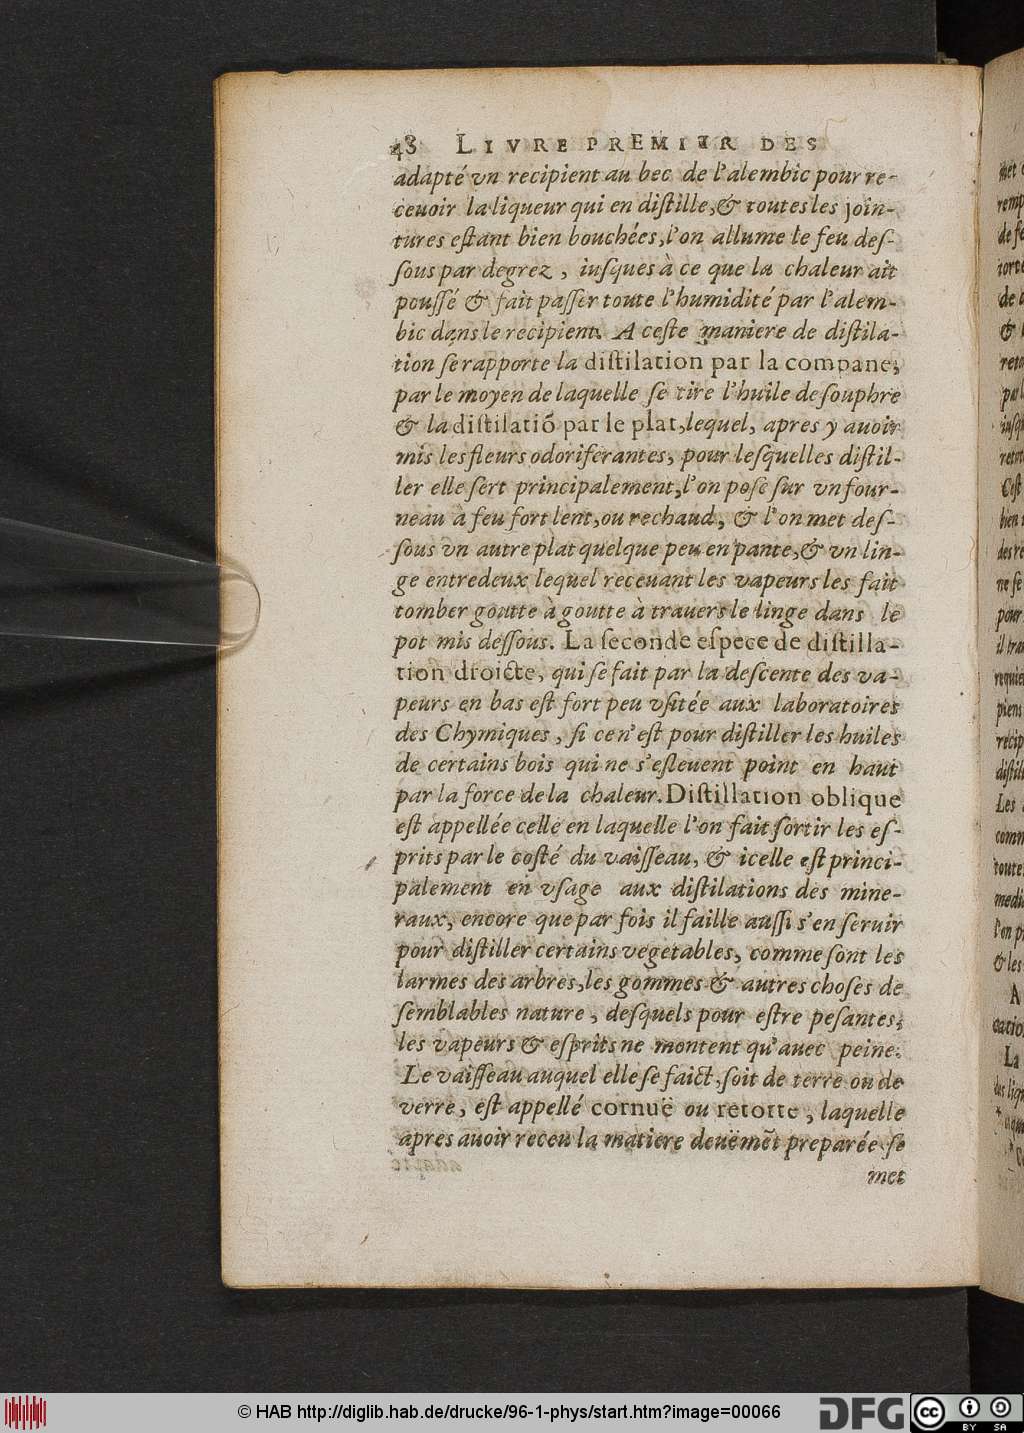 48 LIVRE PREMIER DES
adapté vn recipient au bec de l'alembic pour re-
ceuoir la liqueur qui en distille, & toutes les join-
tures estant bien bouchées, l'on allume le feu des-
sous par degrez, iusques à ce que la chaleur ait
poussé & fait passer toute l'humidité par l'alem-
bic dans le recipient. A ceste maniere de distila-
tion se rapporte la distilation par la compane,
par le moyen de laquelle se tire l'huile de souphre
& la distilatiõ par le plat, lequel, apres y auoir
mis les fleurs odoriferantes, pour lesquelles distil-
ler elle sert principalement, l'on pose sur vn four-
neau à feu fort lent, ou rechaud, & l'on met des-
sous vn autre plat quelque peu en pante, & vn lin-
ge entredeux lequel receuant les vapeurs les fait
tomber goutte à goutte à trauers le linge dans le
pot mis dessous. La seconde espece de distilla-
tion droicte, qui se fait par la descente des va-
peurs en bas est fort peu vsitée aux laboratoires
des Chymiques, si ce n'est pour distiller les huiles
de certains bois qui ne s'esleuent point en haut
par la force de la chaleur. Distillation oblique
est appellée celle en laquelle l'on fait sortir les es-
prits par le costé du vaisseau, & icelle est princi-
palement en vsage aux distilations des mine-
raux, encore que par fois il faille aussi s'en seruir
pour distiller certains vegetables, comme sont les
larmes des arbres, les gommes & autres choses de
semblables nature, desquels pour estre pesantes,
les vapeurs & esprits ne montent qu'auec peine.
Le vaisseau auquel elle se faict, soit de terre ou de
verre, est appellé cornuë ou retorte, laquelle
apres auoir receu la matiere deuëmẽt preparée se
met
© HAB http://diglib.hab.de/drucke/96-1-phys/start.htm?image=00066
DFG
cc
BY SA